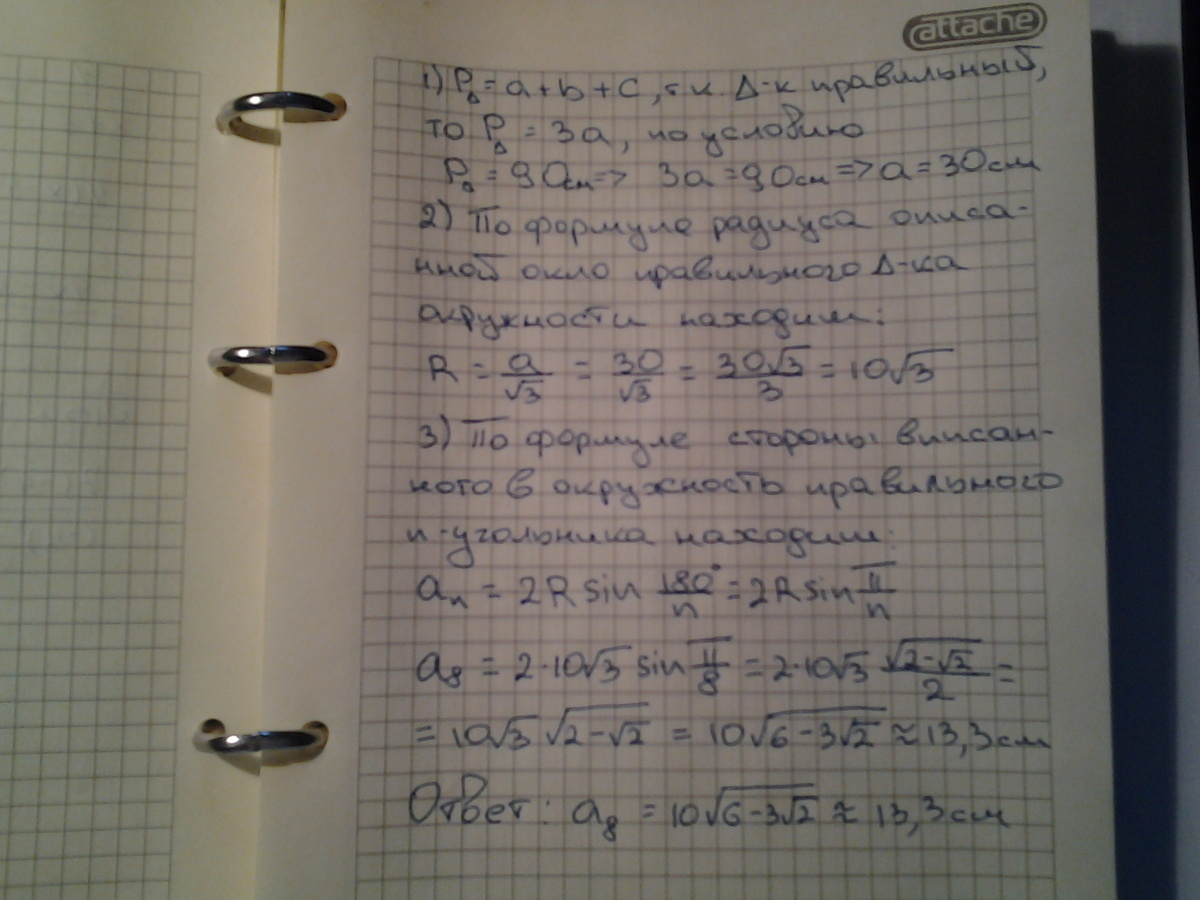 attache
1) P∆ = a + b + c, т.к. ∆-к правильный,
то P∆ = 3a, по условию
P∆ = 90см => 3a = 90см => a = 30см
2) По формуле радиуса описа-
нной окло правильного ∆-ка
окружности находим:
R = a/√3 = 30/√3 = 30√3/3 = 10√3
3) По формуле стороны вписан-
ного в окружность правильного
n-угольника находим:
aₙ = 2R sin 180°/n = 2R sin π/n
a₈ = 2·10√3 sin π/8 = 2·10√3 √(2-√2)/2 =
= 10√3 √(2-√2) = 10√(6-3√2) ≈ 13,3см
Ответ: a₈ = 10√(6-3√2) ≈ 13,3см